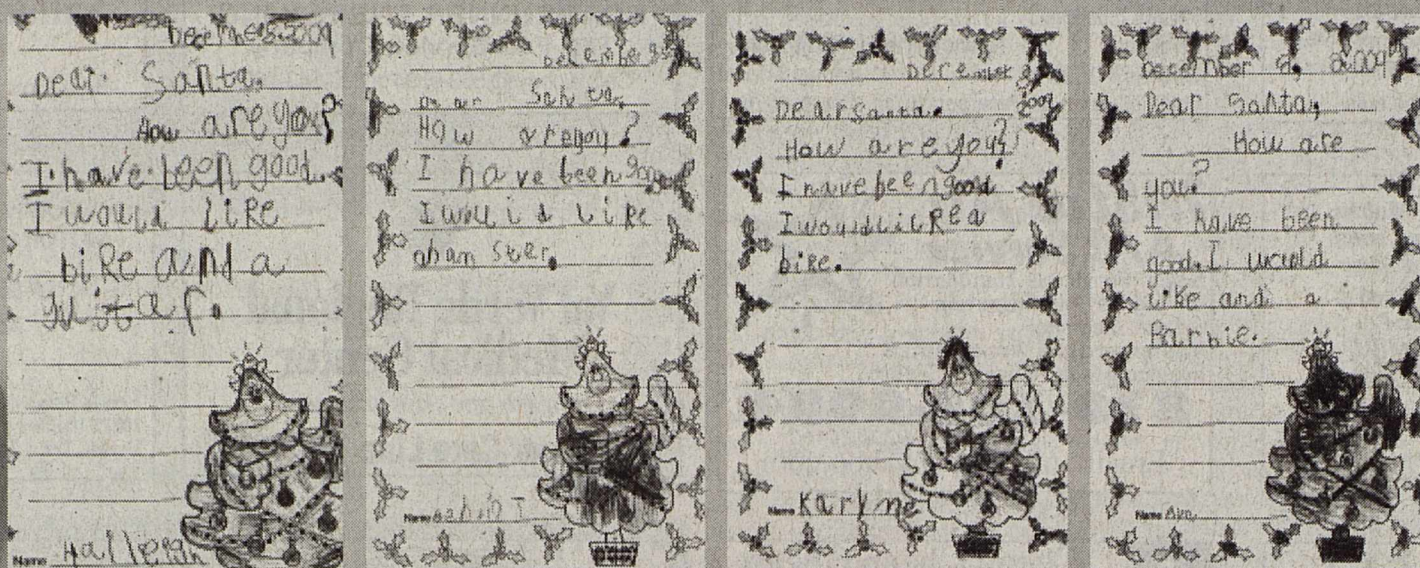 December 8, 2009
Dear Santa,
How are you?
I have been good.
I would like
bike and a
guitar.
Name
December
Dear Santa,
How are you?
I have been good
I would like
a hamster.
Name
December
2009
Dear Santa.
How are you?
I have been good
I would like a
bike.
Name Karlyne
December 8, 2009
Dear Santa,
How are
you?
I have been
good. I would
like and a
Barbie.
Name Ava